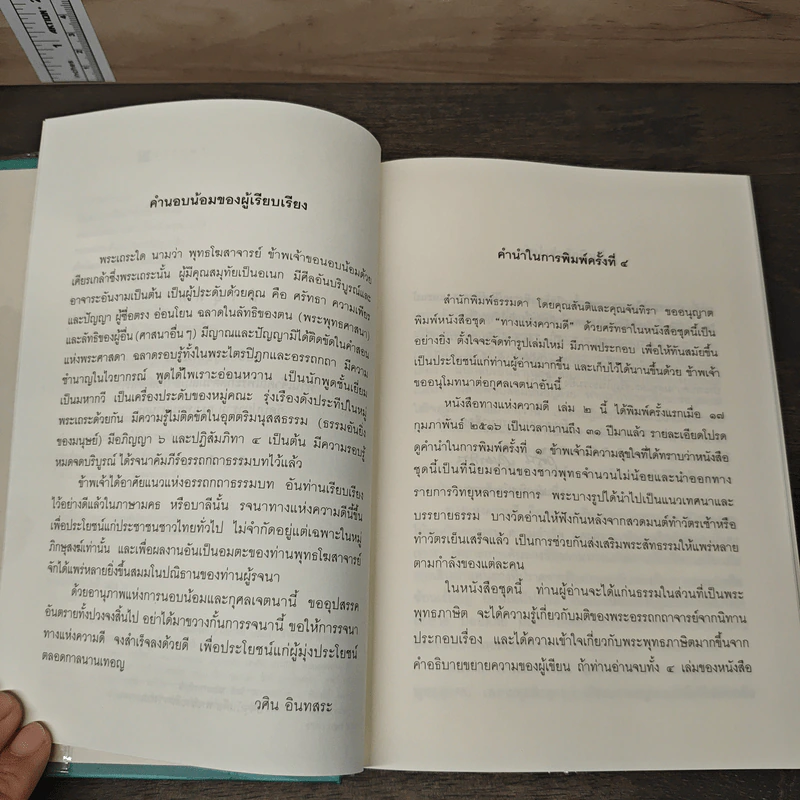 คำนอบน้อมของผู้เรียบเรียง
พระเถระใด นามว่า พุทธโฆสาจารย์ ข้าพเจ้าขอนอบน้อมด้วย
เศียรเกล้าซึ่งพระเถระนั้น ผู้มีคุณสมุทัยเป็นอเนก มีศีลอันบริบูรณ์และ
อาจาระอันงามเป็นต้น เป็นผู้ประดับด้วยคุณ คือ ศรัทธา ความเพียร
และปัญญา ผู้ซื่อตรง อ่อนโยน ฉลาดในลัทธิของตน (พระพุทธศาสนา)
และลัทธิของผู้อื่น (ศาสนาอื่นๆ) มีญาณและปัญญามิได้ติดขัดในคำสอน
แห่งพระศาสดา ฉลาดรอบรู้ทั้งในพระไตรปิฎกและอรรถกถา มีความ
ชำนาญในไวยากรณ์ พูดได้ไพเราะอ่อนหวาน เป็นนักพูดชั้นเยี่ยม
เป็นมหากวี เป็นเครื่องประดับของหมู่คณะ รุ่งเรืองดังประทีปในหมู่
พระเถระด้วยกัน มีความรู้ไม่ติดขัดในอุตตริมนุสสธรรม (ธรรมอันยิ่ง
ของมนุษย์) มีอภิญญา ๖ และปฏิสัมภิทา ๔ เป็นต้น มีความรอบรู้
หมดจดบริบูรณ์ ได้รจนาคัมภีร์อรรถกถาธรรมบทไว้แล้ว
ข้าพเจ้าได้อาศัยแนวแห่งอรรถกถาธรรมบท อันท่านเรียบเรียง
ไว้อย่างดีแล้วในภาษามคธ หรือบาลีนั้น รจนาทางแห่งความดีนี้ขึ้น
เพื่อประโยชน์แก่ประชาชนชาวไทยทั่วไป ไม่จำกัดอยู่แต่เฉพาะในหมู่
ภิกษุสงฆ์เท่านั้น และเพื่อผลงานอันเป็นอมตะของท่านพุทธโฆสาจารย์
จักได้แพร่หลายยิ่งขึ้นสมมโนปณิธานของท่านผู้รจนา
ด้วยอานุภาพแห่งการนอบน้อมและกุศลเจตนานี้ ขออุปสรรค
อันตรายทั้งปวงจงสิ้นไป อย่าได้มาขวางกั้นการรจนานี้ ขอให้การรจนา
ทางแห่งความดี จงสำเร็จลงด้วยดี เพื่อประโยชน์แก่ผู้มุ่งประโยชน์
ตลอดกาลนานเทอญ
วศิน อินทสระ
คำนำในการพิมพ์ครั้งที่ ๔
สำนักพิมพ์ธรรมดา โดยคุณสันติและคุณจันทิรา ขออนุญาต
พิมพ์หนังสือชุด “ทางแห่งความดี” ด้วยศรัทธาในหนังสือชุดนี้เป็น
อย่างยิ่ง ตั้งใจจะจัดทำรูปเล่มใหม่ มีภาพประกอบ เพื่อให้ทันสมัยขึ้น
เป็นประโยชน์แก่ท่านผู้อ่านมากขึ้น และเก็บไว้ได้นานขึ้นด้วย ข้าพเจ้า
ขออนุโมทนาต่อกุศลเจตนาอันนี้
หนังสือทางแห่งความดี เล่ม ๒ นี้ ได้พิมพ์ครั้งแรกเมื่อ ๑๗
กุมภาพันธ์ ๒๕๑๖ เป็นเวลานานถึง ๓๑ ปีมาแล้ว รายละเอียดโปรด
ดูคำนำในการพิมพ์ครั้งที่ ๑ ข้าพเจ้ามีความสุขใจที่ได้ทราบว่าหนังสือ
ชุดนี้เป็นที่นิยมอ่านของชาวพุทธจำนวนไม่น้อยและนำออกทาง
รายการวิทยุหลายรายการ พระบางรูปได้นำไปเป็นแนวเทศนาและ
บรรยายธรรม บางวัดอ่านให้ฟังกันหลังจากสวดมนต์ทำวัตรเช้าหรือ
ทำวัตรเย็นเสร็จแล้ว เป็นการช่วยกันส่งเสริมพระสัทธรรมให้แพร่หลาย
ตามกำลังของแต่ละคน
ในหนังสือชุดนี้ ท่านผู้อ่านจะได้แก่นธรรมในส่วนที่เป็นพระ
พุทธภาษิต จะได้ความรู้เกี่ยวกับมติของพระอรรถกถาจารย์จากนิทาน
ประกอบเรื่อง และได้ความเข้าใจเกี่ยวกับพระพุทธภาษิตมากขึ้นจาก
คำอธิบายขยายความของผู้เขียน ถ้าท่านอ่านจบทั้ง ๔ เล่มของหนังสือ